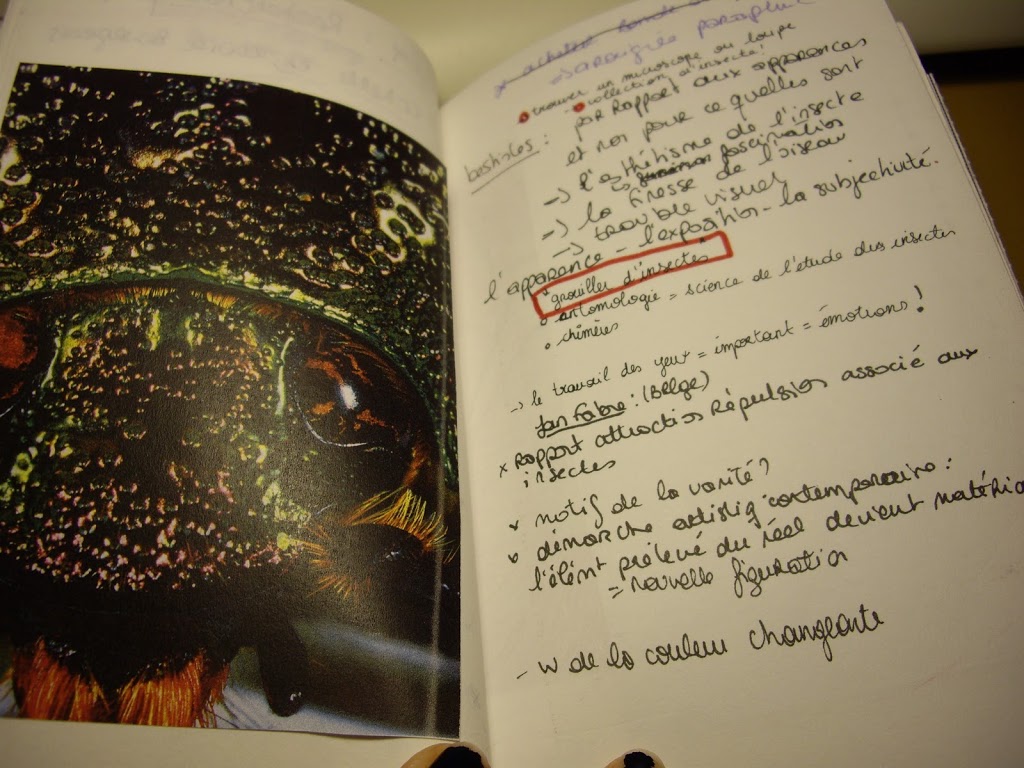 x acheter
araignée
• trouver un microscope ou loupe
• collection d'insecte!
bestioles : par Rapport aux apparences
et non pour ce quelles sont
-> l'esthétisme de l'insecte
fascination
-> la finesse de l'oiseau
-> trouble visuel
l'apparence - l'exposition - la subjectivité.
grouiller d'insectes
o entomologie = science de l'étude des insectes
o chimères
-> le travail des yeux = important = émotions!
Jan Fabre : (Belge)
x Rapport attraction Répulsion associé aux
insectes
x motif de la vanité?
démarche artistiq contemporaine :
l'élémt prélevé du réel devient matéria
= nouvelle figuration
- W de la couleur changeante